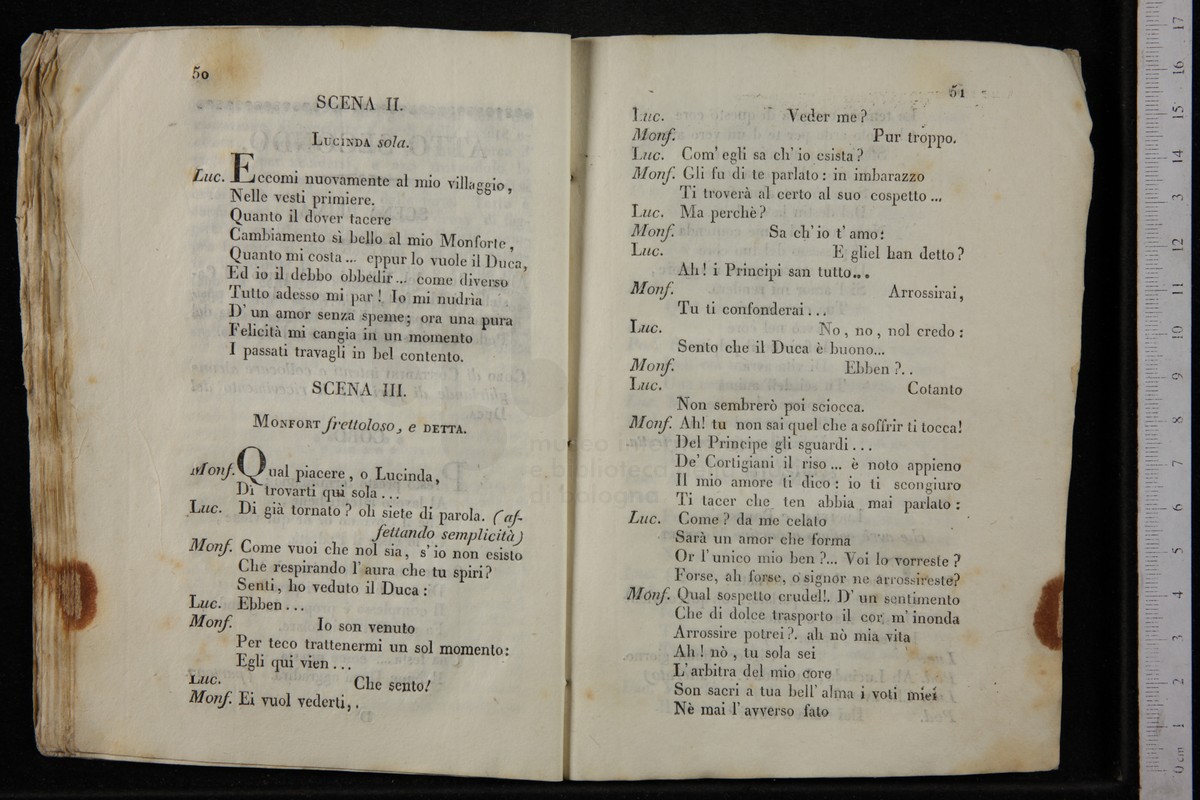 50
SCENA II.
LUCINDA sola.
Luc. Eccomi nuovamente al mio villaggio,
Nelle vesti primiere.
Quanto il dover tacere
Cambiamento sì bello al mio Monforte,
Quanto mi costa ... eppur lo vuole il Duca,
Ed io il debbo obbedir ... come diverso
Tutto adesso mi par! Io mi nudrìa
D' un amor senza speme; ora una pura
Felicità mi cangia in un momento
I passati travagli in bel contento.
SCENA III.
MONFORT frettoloso, e DETTA.
Monf. Qual piacere, o Lucinda,
Di trovarti quì sola ...
Luc. Di già tornato? oh siete di parola. (af-
fettando semplicità)
Monf. Come vuoi che nol sia, s' io non esisto
Che respirando l' aura che tu spiri?
Senti, ho veduto il Duca:
Luc. Ebben ...
Monf. Io son venuto
Per teco trattenermi un sol momento:
Egli qui vien ...
Luc. Che sento!
Monf. Ei vuol vederti,.
51
Luc. Veder me?
Monf. Pur troppo.
Luc. Com' egli sa ch' io esista?
Monf. Gli fu di te parlato: in imbarazzo
Ti troverà al certo al suo cospetto ...
Luc. Ma perchè?
Monf. Sa ch' io t' amo:
Luc. E gliel han detto?
Ah! i Principi san tutto...
Monf. Arrossirai,
Tu ti confonderai ...
Luc. No, no, nol credo:
Sento che il Duca è buono...
Monf. Ebben?..
Luc. Cotanto
Non sembrerò poi sciocca.
Monf. Ah! tu non sai quel che a soffrir ti tocca!
Del Principe gli sguardi ...
De' Cortigiani il riso ... è noto appieno
Il mio amore ti dico: io ti scongiuro
Ti tacer che ten abbia mai parlato:
Luc. Come? da me celato
Sarà un amor che forma
Or l' unico mio ben?... Voi lo vorreste?
Forse, ah forse, o signor ne arrossireste?
Monf. Qual sospetto crudel!. D' un sentimento
Che di dolce trasporto il cor m' inonda
Arrossire potrei?. ah nò mia vita
Ah! nò, tu sola sei
L' arbitra del mio core
Son sacri a tua bell' alma i voti miei
Nè mai l' avverso fato
museo
e biblioteca
di bologna
17
16
15
14
13
12
11
10
9
8
7
6
5
4
3
2
1
0 cm